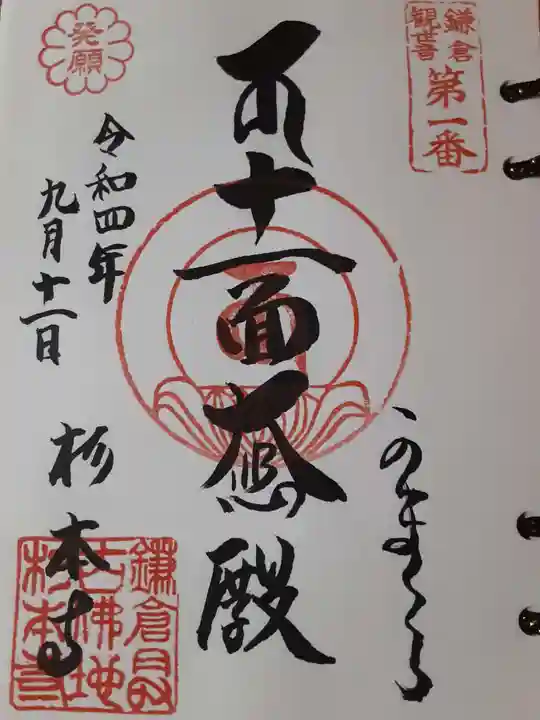 鎌倉
観世音
第一番
かまくら
十一面大悲殿
発願
令和四年
九月十一日
杉本寺
鎌倉最
古佛地
杉本寺